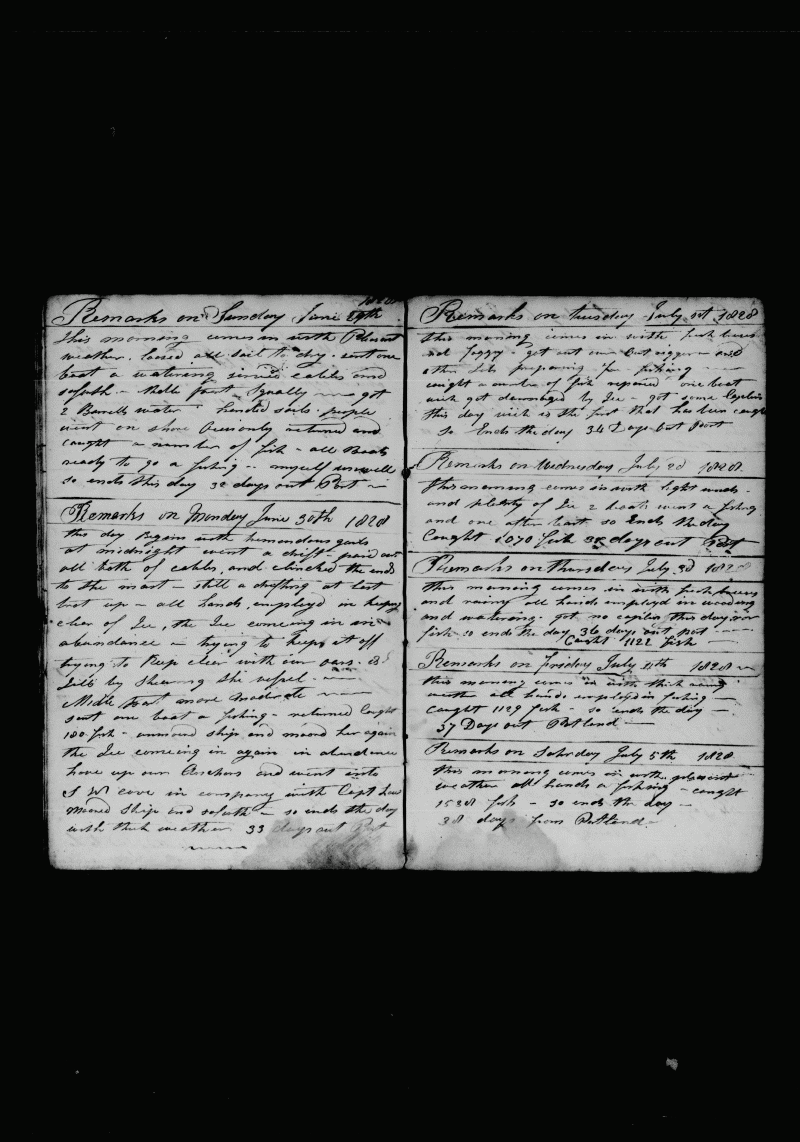 1828
Remarks on Sunday June 29th
this morning comes in with Plesent
weather. loosed all sail to dry. sent one
boat a watering cables and
soforth - got
2 Barells water. handed sails. people
went on shore returned and
caught a number of fish - all Boats
ready to go a fishing - myself unwell
so ends this day 32 days out Port
Remarks on Monday June 30th 1828
this day begins with tremendous gails
at midnight went a drift - paid out
all both of cables, and clinched the ends
to the mast - still a drifting at last
brot up - all hands employd in keeping
clear of Ice, the Ice comeing in in
abundance - trying to keep it off
trying to keep clear with our oars. &
by Sheering the vessel -
Middle part more moderate
sent one boat a fishing - returned Caght
180 fish - unmored ship and mored her again
the Ice comeing in again in abundance
hove up our Anchors and went into
S W cove in company with Capt
mored Ship and soforth - so ends the day
with thick weather 33 days out Port
Remarks on tuesday July 1st 1828
this morning comes in with fresh brees
and foggy - got out our and
other preparing for fishing
caught a number of fish repaired one boat
wich got dammaged by Ice - got some Caplin
this day wich is the first that has been caught
so Ends the day 34 Days out Port
Remarks on Wednesday July 2d 1828
this morning comes in with light winds
and plenty of Ice 2 boats went a fishing
and one after bait so Ends the day
Caught 1070 fish 35 days out Port
Remarks on thursday July 3d 1828
this morning comes in with fresh breeses
and rainy all hands employd in wooding
and watering. got no caplin this day nor
fish so ends the day 36 days out port
Caught 1122 fish
Remarks on Friday July 4th 1828
this morning comes in with thick rainy
wether all hands employd in fishing
caught 1129 fish - so ends the day -
37 Days out Portland
Remarks on Saturday July 5th 1828
this morning comes in with plesent
weather all hands a fishing - caught
1538 fish - so ends the day -
38 days from Portland